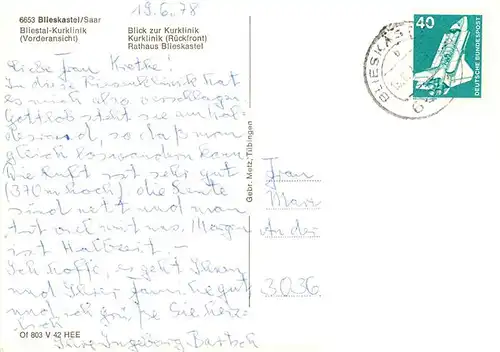 19.6.78
6653 Blieskastel/Saar
Bliestal-Kurklinik
(Vorderansicht)
Blick zur Kurklinik
Kurklinik (Rückfront)
Rathaus Blieskastel
40
DEUTSCHE BUNDESPOST
BLIESKAS
Liebe Frau Krethe!
In diese Riesenklinik hat
es mich also verschlagen
Gottlob steht sie am Wal-
desrand, so daß man
gleich loswandern kann
Die Luft ist sehr gut
(370 m hoch), die Leute
sind nett und man
tut auch mit was. Morgen
ist Halbzeit. –
Ich hoffe, es geht Ihnen
und Ihrer Familie gut
und ich grüße Sie herz-
lich
Ihre Ingeborg Bartsch
Gebr. Metz, Tübingen
Frau
Marx
An der
3036
Of 803 V 42 HEE